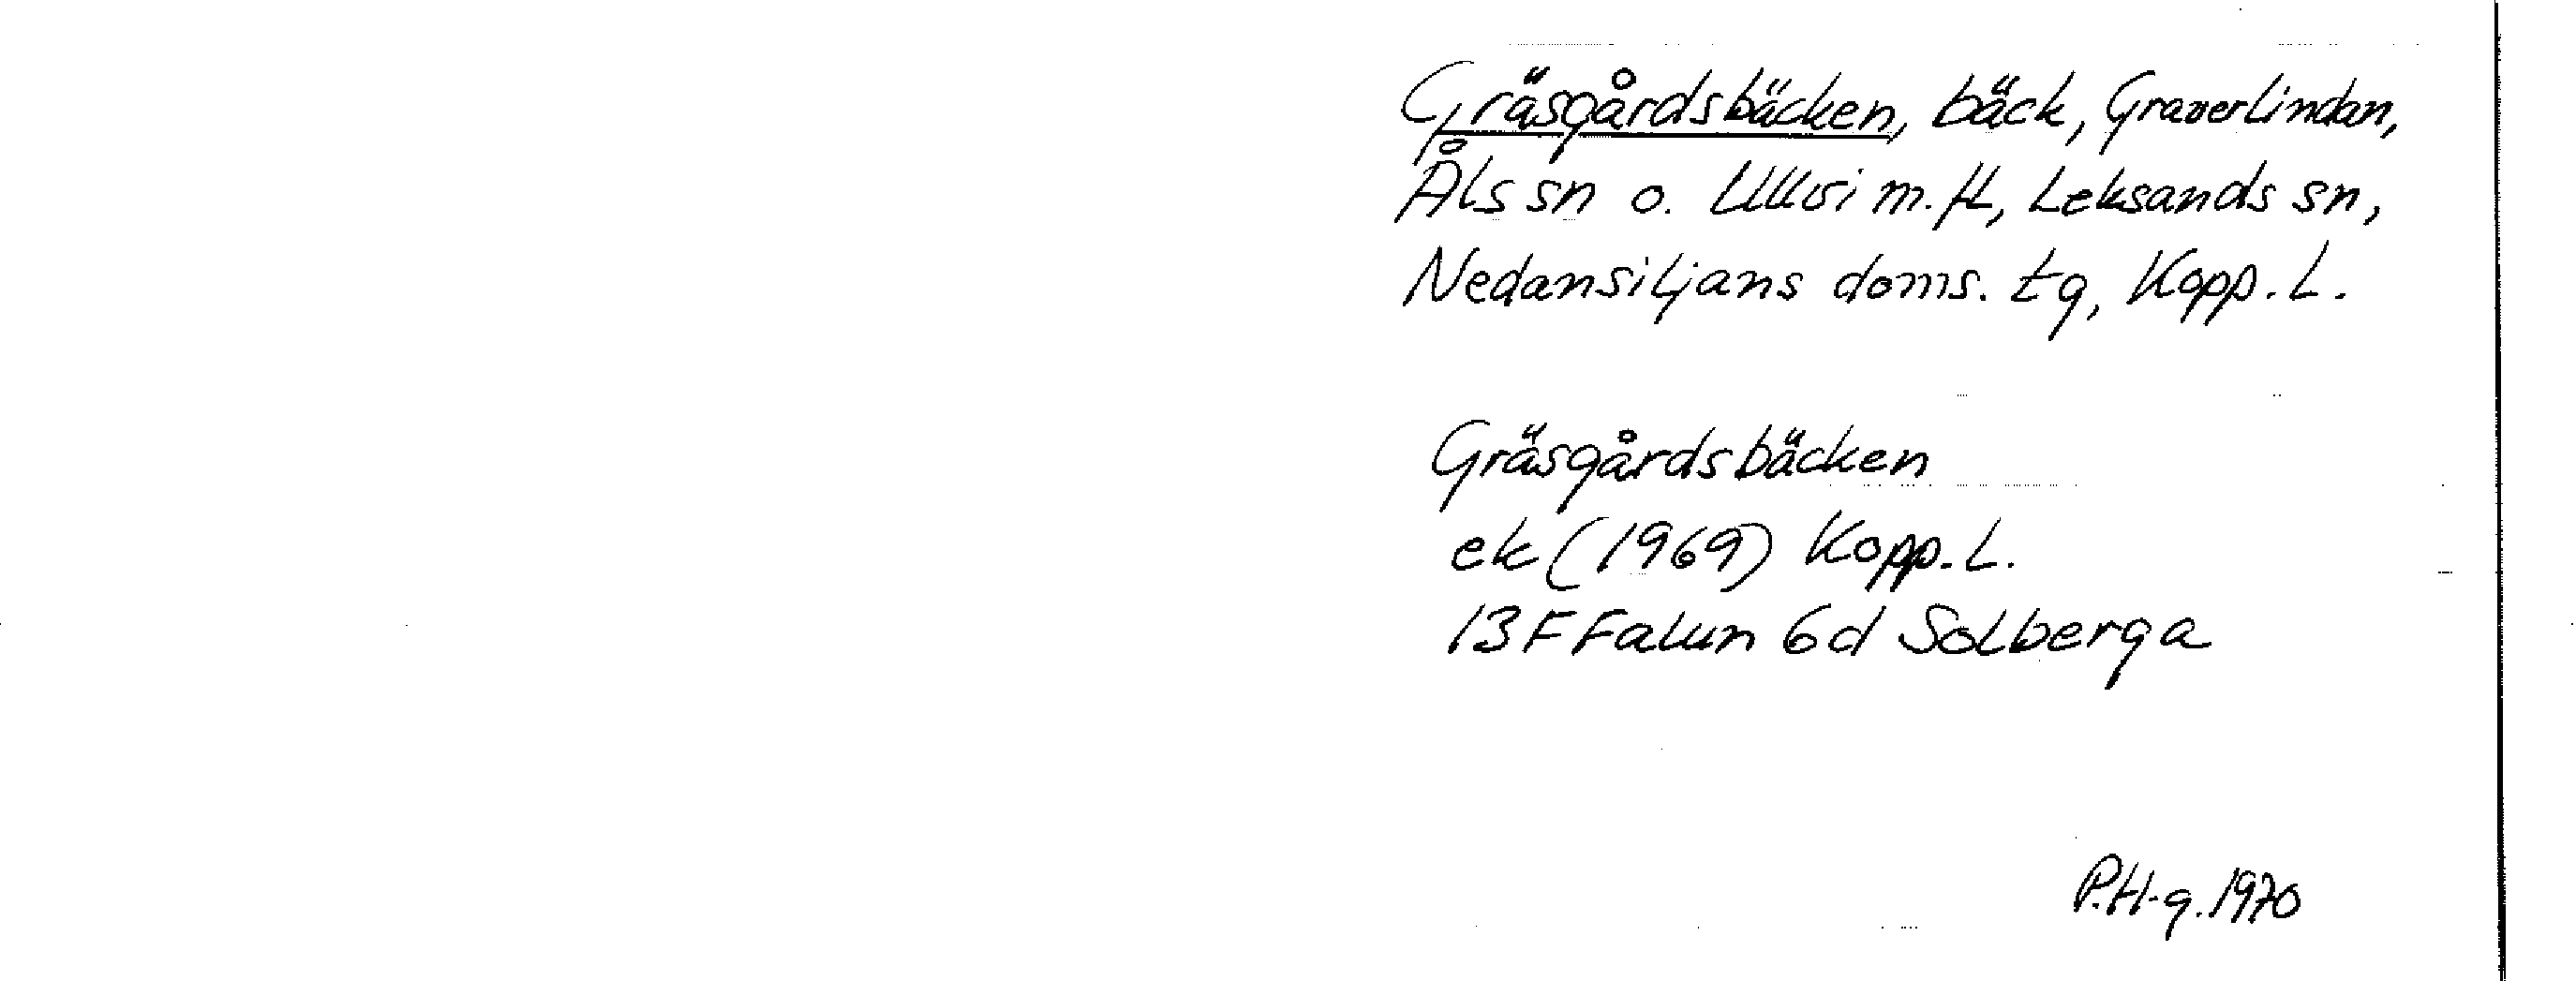 Gräsgårdsbäcken, bäck, Graverlindan,
Åls sn o. Ullvi m.fl, Leksands sn,
Nedansiljans doms. tg, Kopp. L.
Gräsgårdsbäcken
ek (1969) Kopp. L.
13F Falun 6d Solberga
P.H-g. 1970